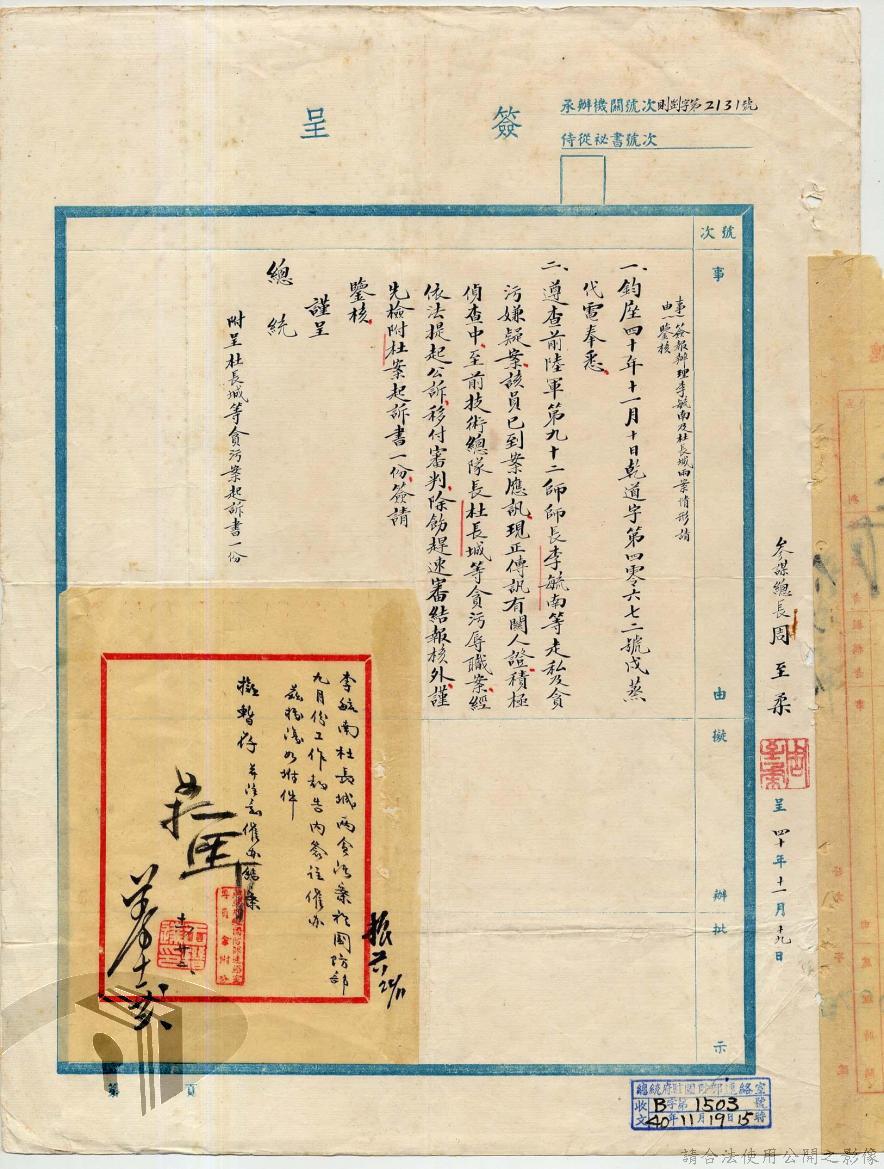 簽呈
承辦機關號次則剴字第2131號
侍從祕書號次
號次
事由擬辦批示
事由：簽報辦理李毓南及杜長城兩案情形請
鑒核
一、鈞座四十年十一月十日乾道字第四零六七二號戌蒸
代電奉悉
二、遵查前陸軍第九十二師師長李毓南等走私及貪
污嫌疑案該員已到案應訊現正傳訊有關人證積極
偵查中至前技術總隊長杜長城等貪污辱職案經
依法提起公訴移付審判除飭趕速審結報核外謹
先檢附杜案起訴書一份簽請
鑒核
謹呈
總統
附呈杜長城等貪污案起訴書一份
參謀總長周至柔
呈四十年十一月十九日
李毓南杜長城兩貪污案於國防部
九月份工作報告內簽註催辦
茲據復如附件
擬暫存並注意催办結案
如擬
十一廿二
振六
22/11
總統府駐國防部連絡室
收文
B字第1503號
40年11月19日15時
第頁
請合法使用公開之影像